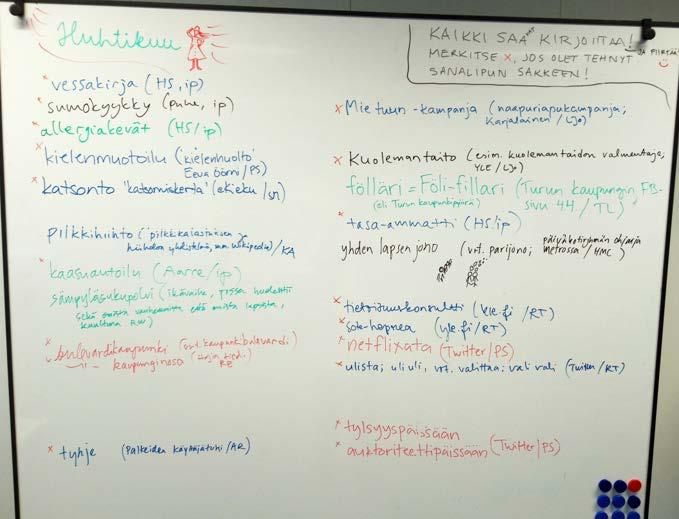 Huhtikuu
KAIKKI SAAVAT KIRJOITTAA! JA PIIRTÄÄ!
MERKITSE X, JOS OLET TEHNYT
SANALIPUN SÄKKEEN!
x vessakirja (HS, ip)
x sumokyykky (puhe, ip)
x allergiakevät (HS/ip)
x kielenmuotoilu ('kielenhuolto'
Eeva Törmi/PS)
x katsonto 'katsomiskerta' (eKieku/sn)
pilkkihiihto ('pilkkikalastuksen ja
hiihdon yhdistelmä, mm. Wikipedia)/KA
x kaasuautoilu (Aarre/ip)
sämpyläsukupolvi (ikävaihe, jossa huolehtii
sekä omista vanhemmista että omista lapsista,
kuultuna RW)
x bulevardikaupunki (vrt. kaupunkibulevardi)
x —"— kaupunginosa
RE
x tyhje (Palkeiden käyttäjätuki/AR)
x Mie tuun -kampanja (naapuriapukampanja;
Karjalainen/LJo)
x Kuolemantaito (esim. kuolemantaidon valmentaja;
YLE/LJo)
fölläri = Föli-fillari (Turun kaupungin FB-
(eli Turun kaupunkipyörä) sivu 4.4. / TL)
x tasa-ammatti (HS/ip)
yhden lapsen jono (vrt. parijono; päiväkotiryhmän ohjaaja
metrossa / HMC)
x tietoisuuskonsultti (yle.fi/RT)
x sote-hopnea (yle.fi/RT)
x netflixata (Twitter/PS)
x ulista; uli uli, vrt. valittaa; vali vali (Twitter/RT)
x tylsyyspäissään
x auktoriteettipäissään (Twitter/PS)